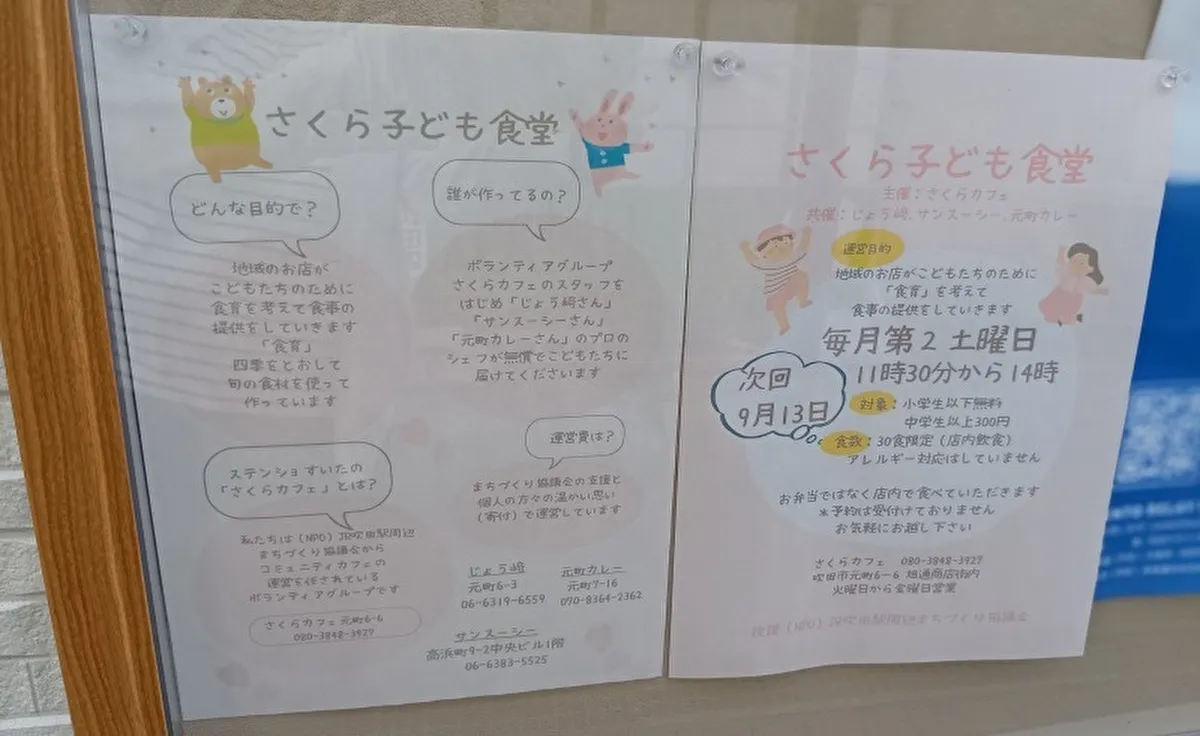 さくら子ども食堂
どんな目的で?
地域のお店が
こどもたちのために
食育を考えて食事の
提供をしていきます
「食育」
四季をとおして
旬の食材を使って
作っています
誰が作ってるの?
ボランティアグループ
さくらカフェのスタッフを
はじめ「じょう﨑さん」
「サンスーシーさん」
「元町カレーさん」のプロの
シェフが無償でこどもたちに
届けてくださいます
ステンショすいたの
「さくらカフェ」とは?
私たちは(NPO)JR吹田駅周辺
まちづくり協議会から
コミュニティカフェの
運営を任されている
ボランティアグループです
さくらカフェ元町6-6
080-3848-3927
運営費は?
まちづくり協議会の支援と
個人の方々の温かい思い
(寄付)で運営しています
じょう﨑
元町6-3
06-6319-6559
元町カレー
元町7-16
070-8364-2362
サンスーシー
高浜町9-2中央ビル1階
06-6383-5525
さくら子ども食堂
主催:さくらカフェ
共催:じょう﨑、サンスーシー、元町カレー
運営目的
地域のお店がこどもたちのために
「食育」を考えて
食事の提供をしていきます
毎月第2土曜日
11時30分から14時
次回
9月13日
対象:小学生以下無料
中学生以上300円
食数:30食限定(店内飲食)
アレルギー対応はしていません
お弁当ではなく店内で食べていただきます
*予約は受付けておりません
お気軽にお越し下さい
さくらカフェ 080-3848-3927
吹田市元町6-6 旭通商店街内
火曜日から金曜日営業
後援(NPO)JR吹田駅周辺まちづくり協議会